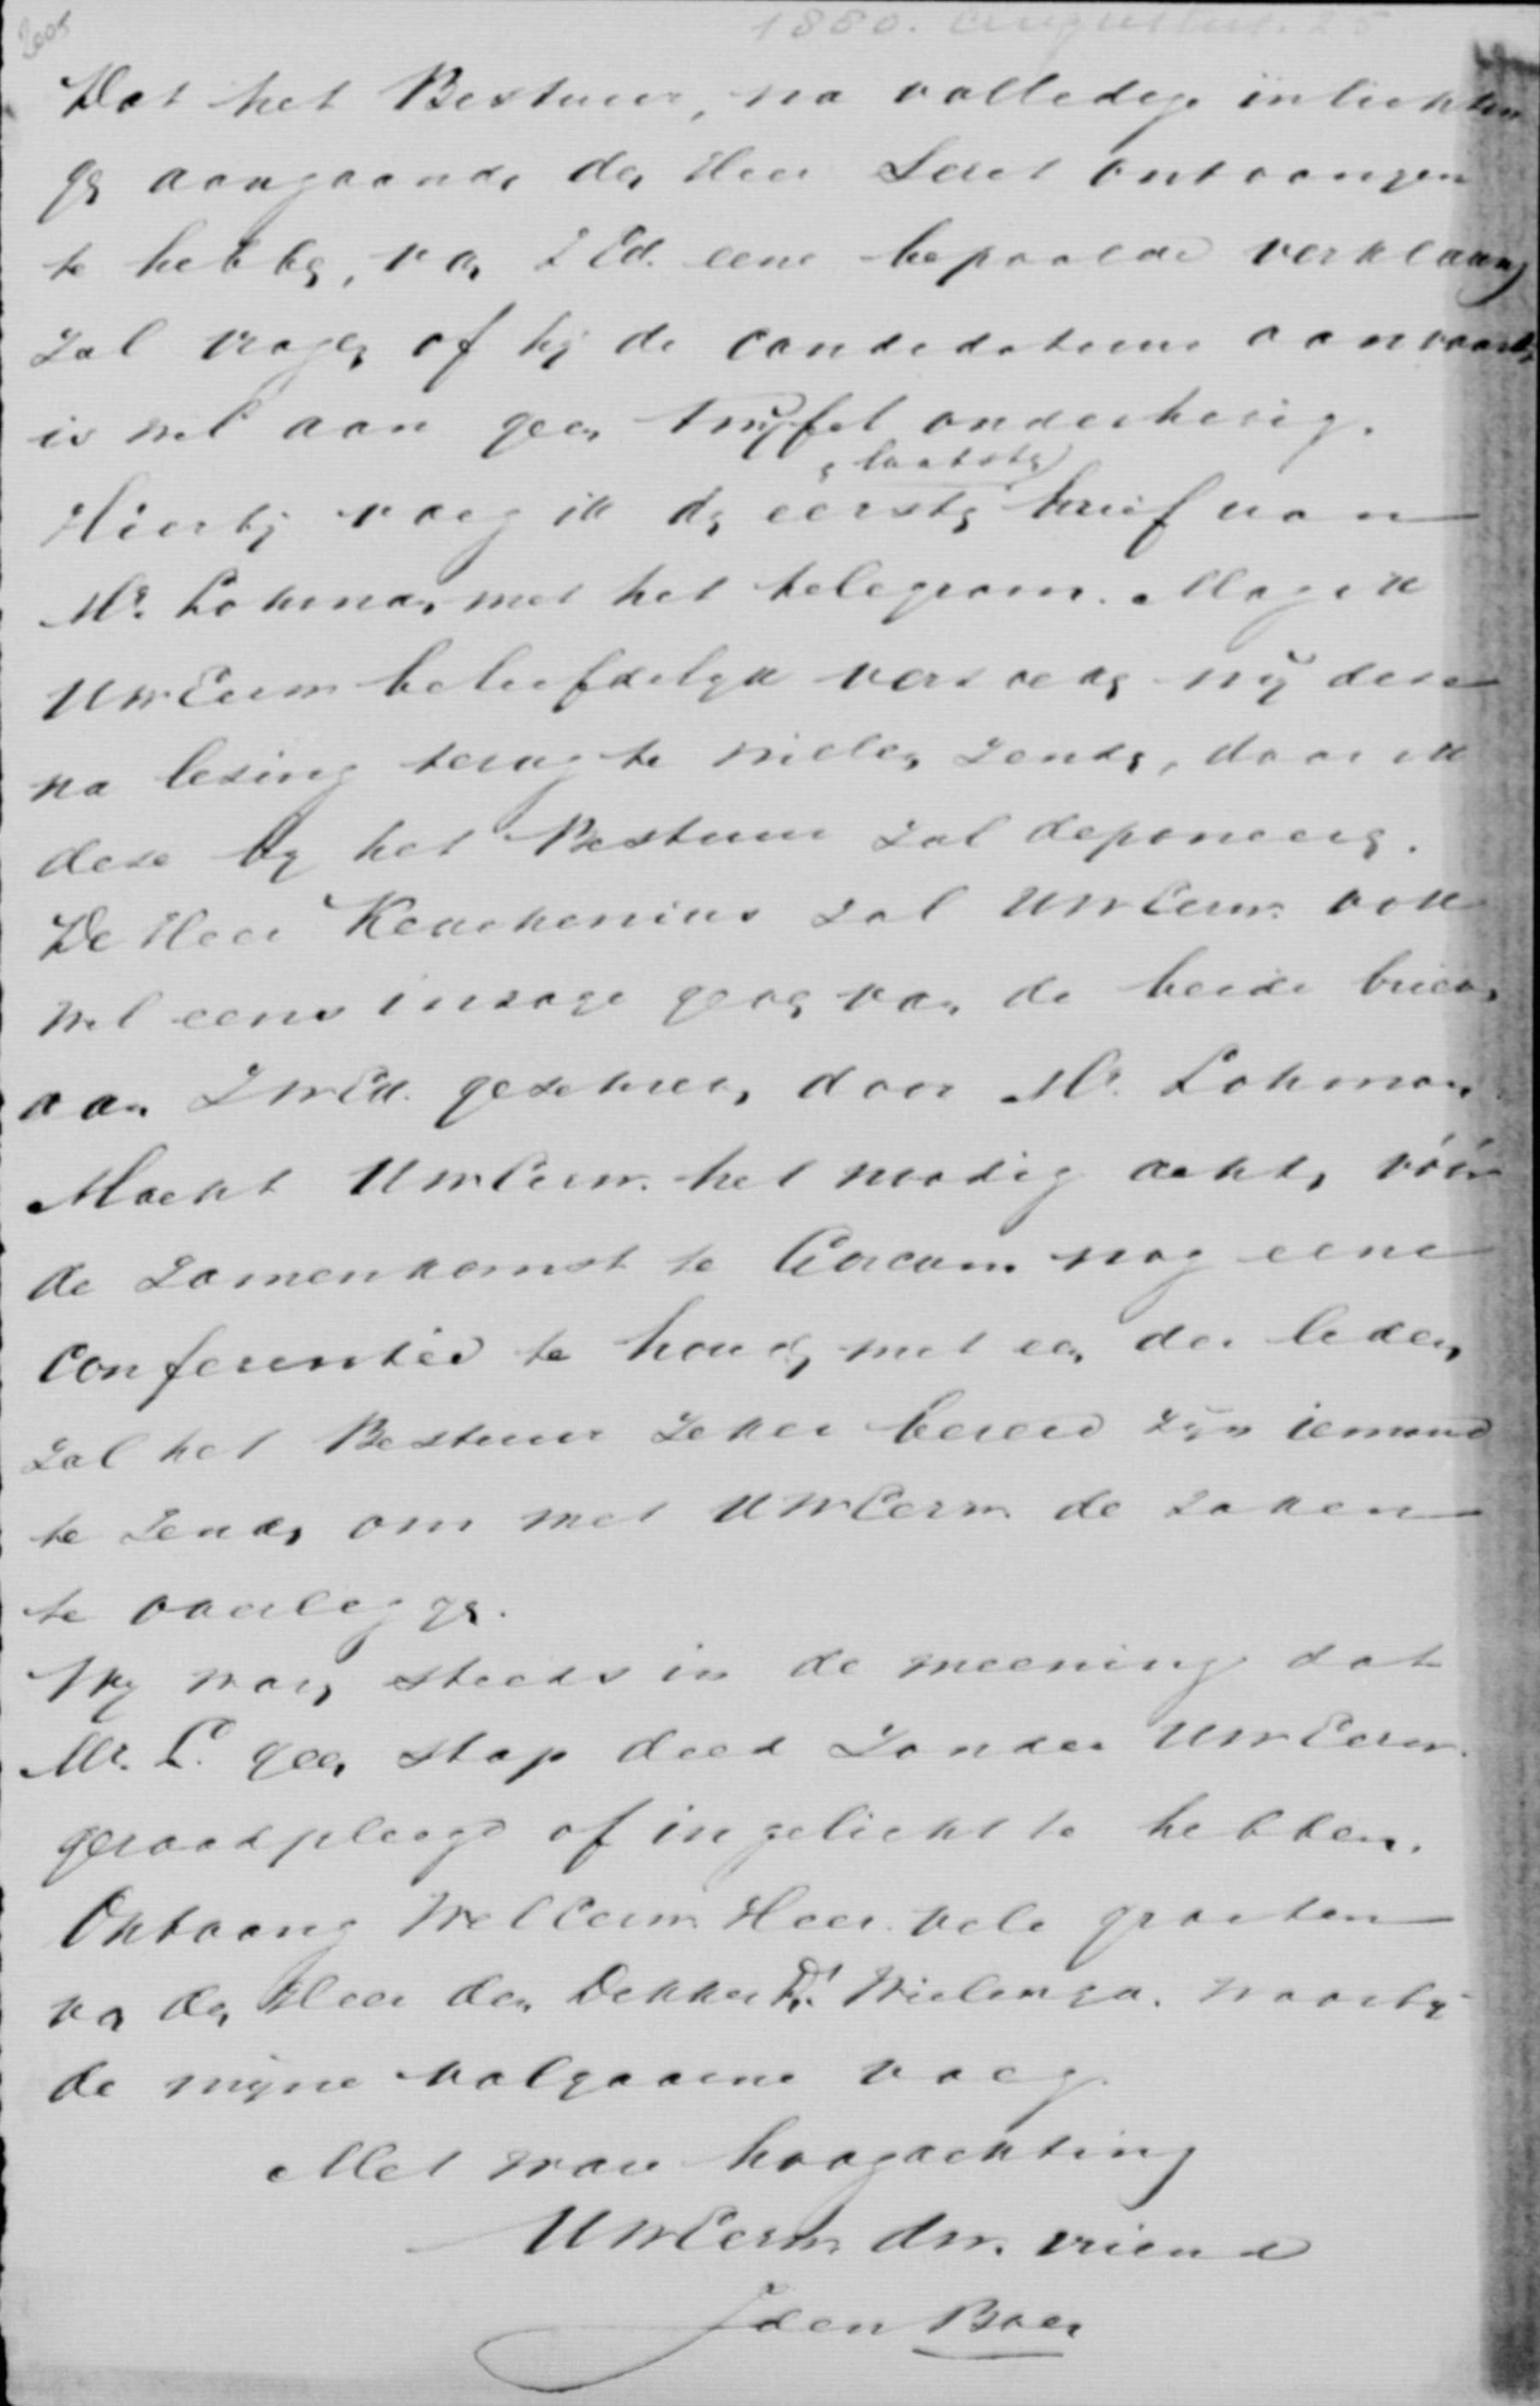 2005
1880. Augustus. 25
Dat het Bestuur, na volledige inlichtin
gen aangaande den Heer Seret ontvangen
te hebben, van ZEd. eene bepaalde verklaring
zal vragen of hij de candidatuur aanvaardt,
is wel aan geen twijfel onderhevig.
en laatsten
Hierbij voeg ik den eersten brief van
Mr. Lohman met het telegram. Mag ik
UwEerw beleefdelijk verzoeken mij deze
na lezing terug te willen zenden, daar ik
deze bij het Bestuur zal deponeeren.
De Heer Keuchenius zal UwEerw. ook
wel eens inzage geven van de beide brieven
aan ZwEd. geschreven door Mr. Lohman.
Mocht UwEerw. het noodig achten vóór
de zamenkomst te Gorcum nog eene
conferentie te houden met een der leden,
zal het Bestuur zeker bereid zijn iemand
te zenden om met UwEerw. de zaken
te overleggen.
Wij waren steeds in de meening dat
Mr. L. geen stap deed zonder UwEerw.
geraadpleegd of ingelicht te hebben.
Ontvang WelEerw. Heer vele groeten
van den Heer den Dekker Ds. Wielenga. waarbij
de mijne volgaarne voeg.
Met ware hoogachting
UwEerw. dw. vriend
J den Boer